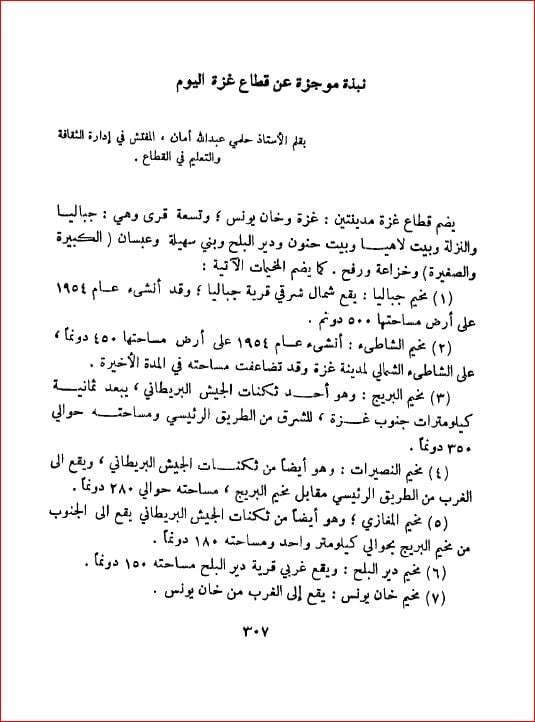 نبذة موجزة عن قطاع غزة اليوم
بقلم الأستاذ حلمي عبدالله أمان ، المفتش في إدارة الثقافة
والتعليم في القطاع .
يضم قطاع غزة مدينتين : غزة وخان يونس ؛ وتسعة قرى وهي : جباليا
والنزلة وبيت لاهيا وبيت حنون ودير البلح وبني سهيلة وعبسان ( الكبيرة
والصغيرة ) وخزاعة ورفح . كما يضم المخيمات الآتية :
(١) مخيم جباليا : يقع شمال شرقي قرية جباليا ؛ وقد أنشىء عام ١٩٥٤
على أرض مساحتها ٥٠٠ دونم .
(٢) مخيم الشاطىء : أنشىء عام ١٩٥٤ على أرض مساحتها ٤٥٠ دونماً ،
على الشاطىء الشمالي لمدينة غزة وقد تضاعفت مساحته في المدة الأخيرة .
(٣) مخيم البريج : وهو أحد ثكنات الجيش البريطاني ، يبعد ثمانية
كيلومترات جنوب غزة ، للشرق من الطريق الرئيسي ومساحته حوالي
٣٥٠ دونماً .
(٤) مخيم النصيرات : وهو أيضاً من ثكنات الجيش البريطاني ، ويقع الى
الغرب من الطريق الرئيسي مقابل مخيم البريج ، مساحته حوالي ٢٨٠ دونماً .
(٥) مخيم المغازي ؛ وهو أيضاً من ثكنات الجيش البريطاني يقع الى الجنوب
من مخيم البريج بحوالي كيلومتر واحد ومساحته ١٨٠ دونماً .
(٦) مخيم دير البلح : ويقع غربي قرية دير البلح مساحته ١٥٠ دونماً .
(٧) مخيم خان يونس : يقع إلى الغرب من خان يونس .
٣٠٧